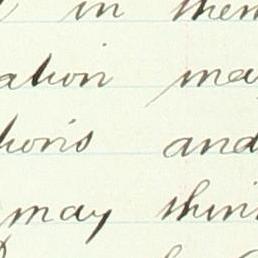 in them
ation may
tions and
may thin